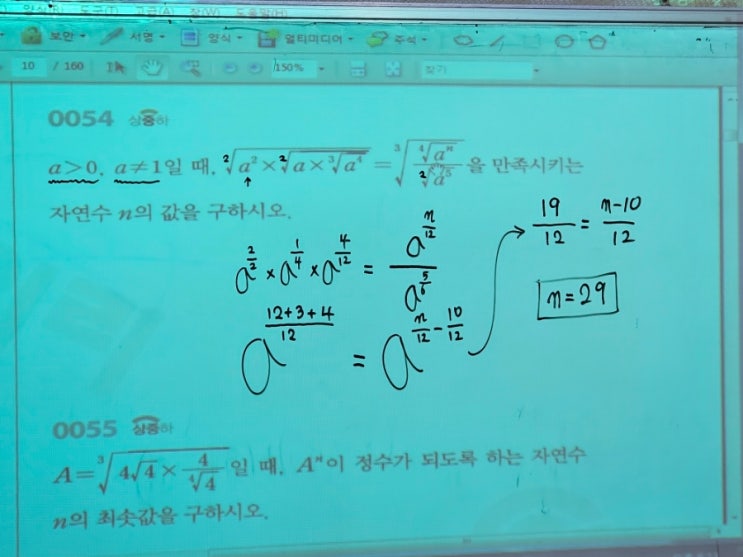 보안 서명 양식 멀티미디어 주석
10 / 160 150% 찾기
0054 상중하
a>0, a≠1일 때, ²√(a²×²√(a׳√(a⁴))) = ³√(⁴√(aⁿ)/²√(a⁵))을 만족시키는
자연수 n의 값을 구하시오.
a^(2/2) × a^(1/4) × a^(4/12) = a^(n/12) / a^(5/6)
a^((12+3+4)/12) = a^(n/12 - 10/12)
19/12 = (n-10)/12
n=29
0055 상중하
A=³√(4√4 × 4/⁴√4)일 때, Aⁿ이 정수가 되도록 하는 자연수
n의 최솟값을 구하시오.